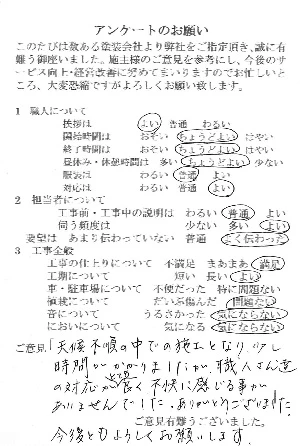 アンケートのお願い
このたびは数ある塗装会社より弊社をご指定頂き、誠に有
難う御座いました。施主様のご意見を参考にし、今後のサ
ービス向上・経営改善に努めてまいりますのでお忙しいと
ころ、大変恐縮ですがよろしくお願い致します。
1 職人について
挨拶は よい 普通 わるい
開始時間は おそい ちょうどよい はやい
終了時間は おそい ちょうどよい はやい
昼休み・休憩時間は 多い ちょうどよい 少ない
服装は わるい 普通 よい
対応は わるい 普通 よい
2 担当者について
工事前・工事中の説明は わるい 普通 よい
伺う頻度は 少ない 多い よい
要望は あまり伝わっていない 普通 よく伝わった
3 工事全般
工事の仕上りについて 不満足 まあまあ 満足
工期について 短い 長い よい
車・駐車場について 不便だった 特に問題ない
植栽について だいぶ傷んだ 問題ない
音について うるさかった 気にならない
においについて 気になる 気にならない
ご意見「天候不順の中での施工となり、少し
時間がかかりましたが、職人さん達
の対応が とても 良く 不快に感じる事が
ありませんでした。ありがとうございました。
ご意見有難うございました。
今後ともよろしくお願いします。